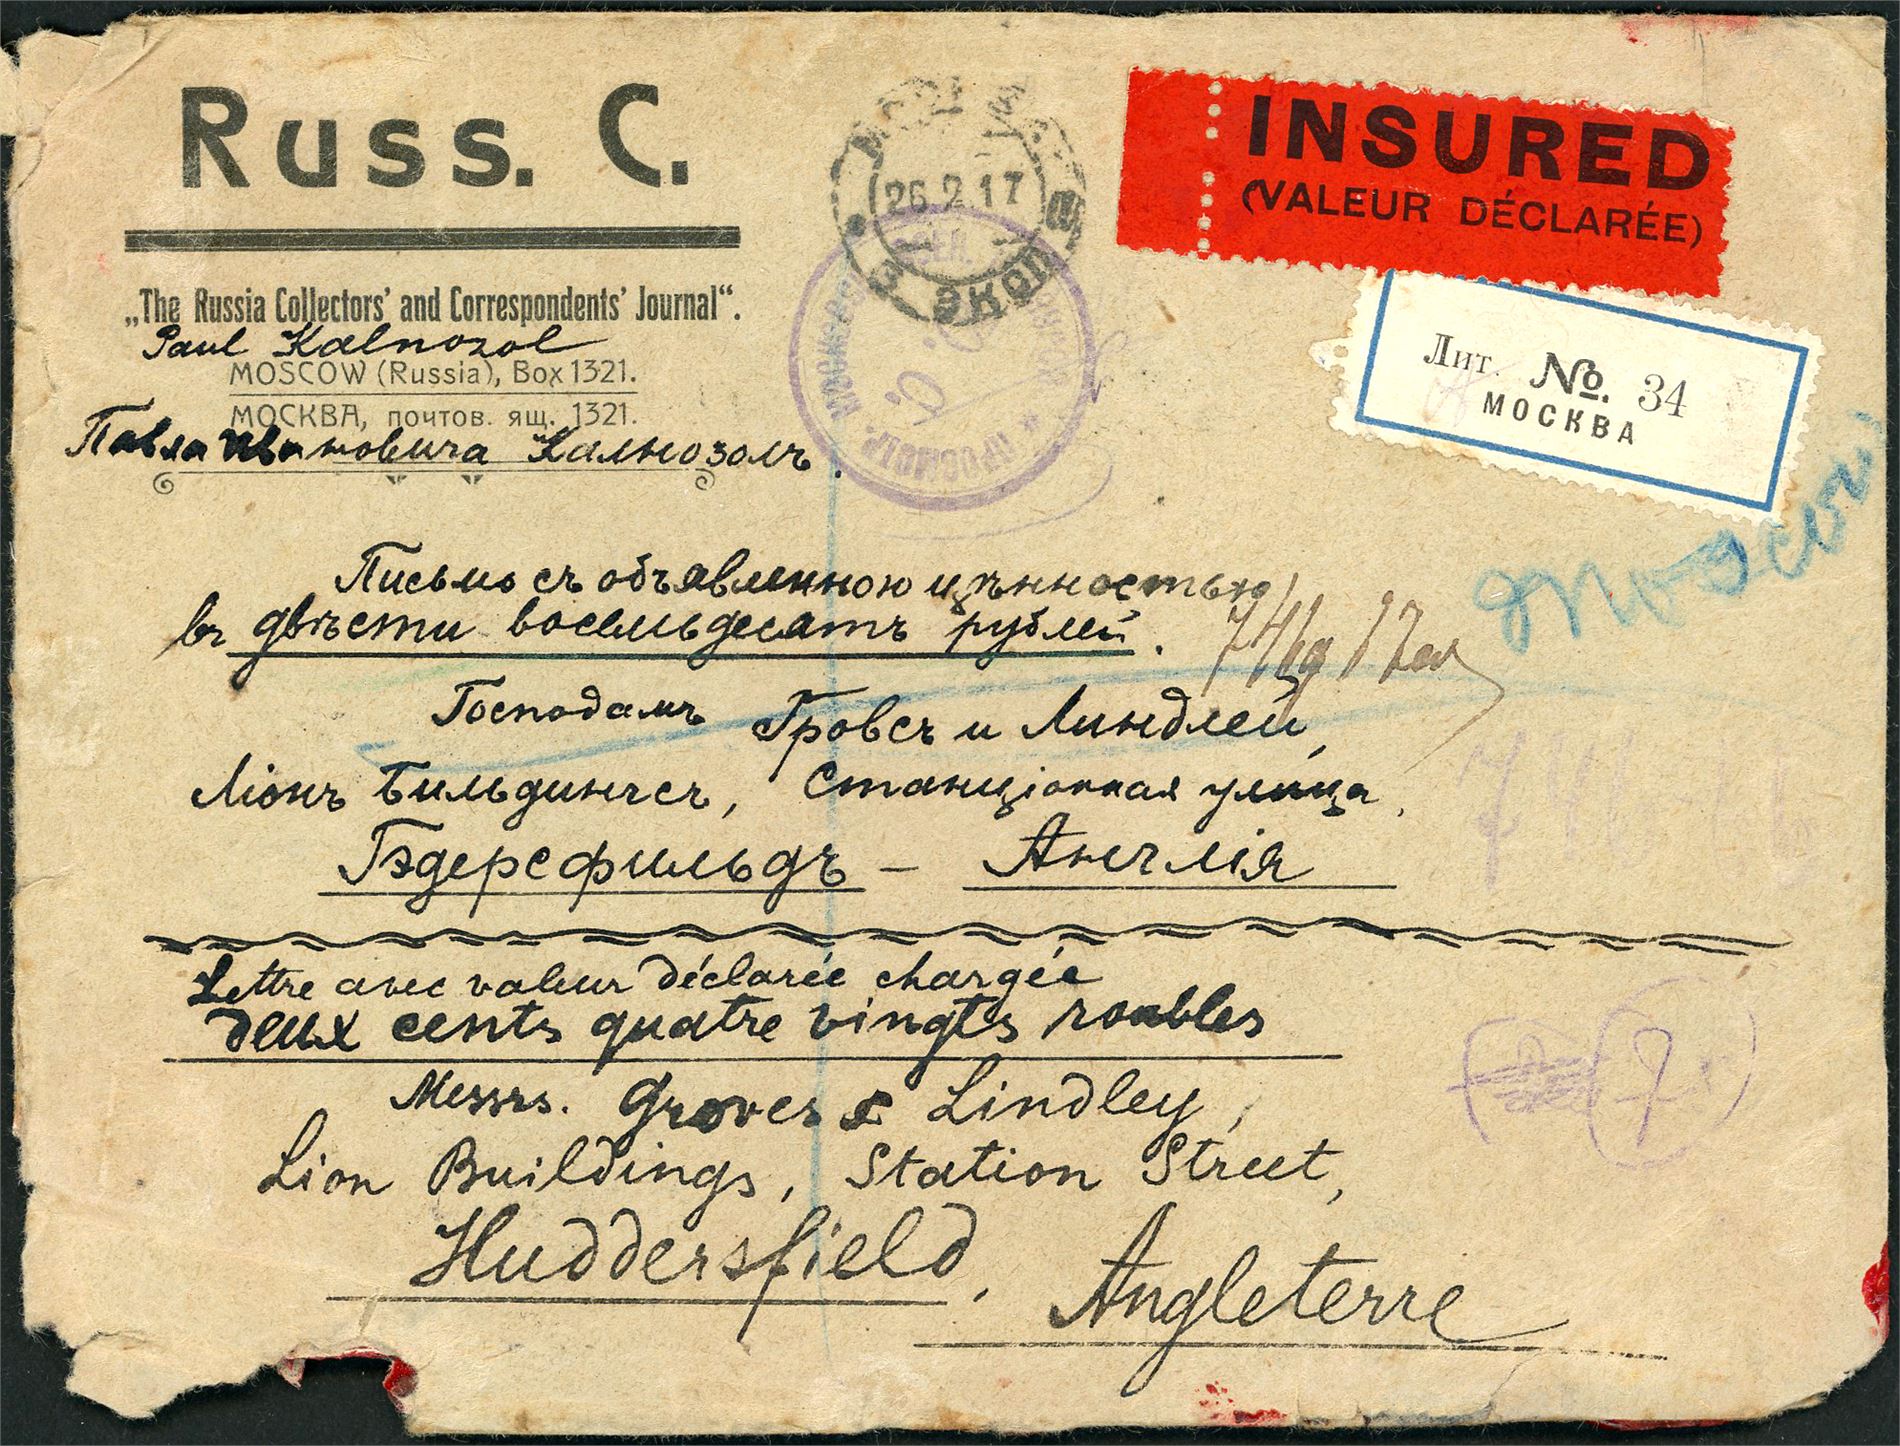 Russ. C.
„The Russia Collectors' and Correspondents' Journal“.
Paul Kalnozol
MOSCOW (Russia), Box 1321.
МОСКВА, почтов. ящ. 1321.
Павла Ивановича Калнозолъ.
26.2.17
ЭКСП
INSURED
(VALEUR DÉCLARÉE)
Лит. № 34
МОСКВА
Письмо съ объявленною цѣнностью
въ двѣсти восемьдесятъ рублей.
Господамъ Гровсъ и Линдлей,
Ліонъ Бильдингсъ, Станціонная улица,
Гэдерсфильдъ – Англія
Lettre avec valeur déclarée chargée
deux cents quatre vingts roubles
Messrs. Groves & Lindley,
Lion Buildings, Station Street,
Huddersfield, Angleterre